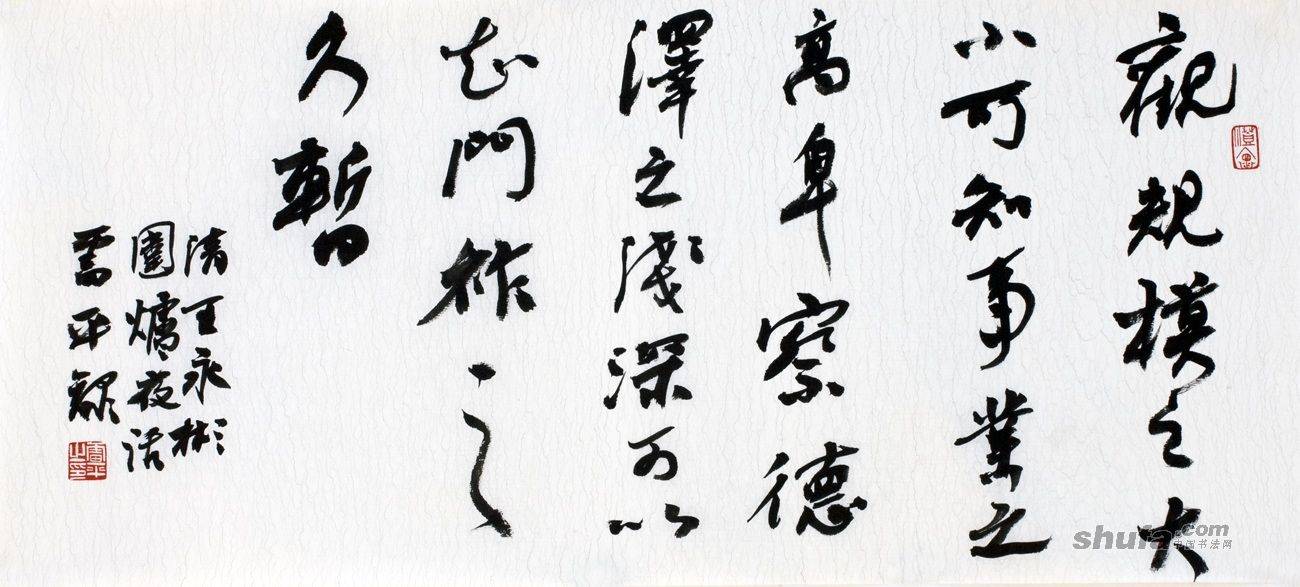 觀規模之大
小可知事業之
高卑察德
澤之淺深可以
知門祚之
久暫
清王永彬
圍爐夜話
平
shufa.com
中国书法网